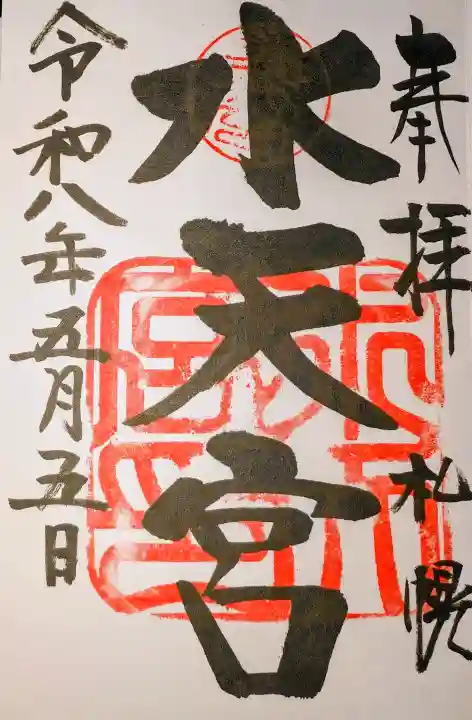 奉拝 札幌
水天宮
令和八年五月五日